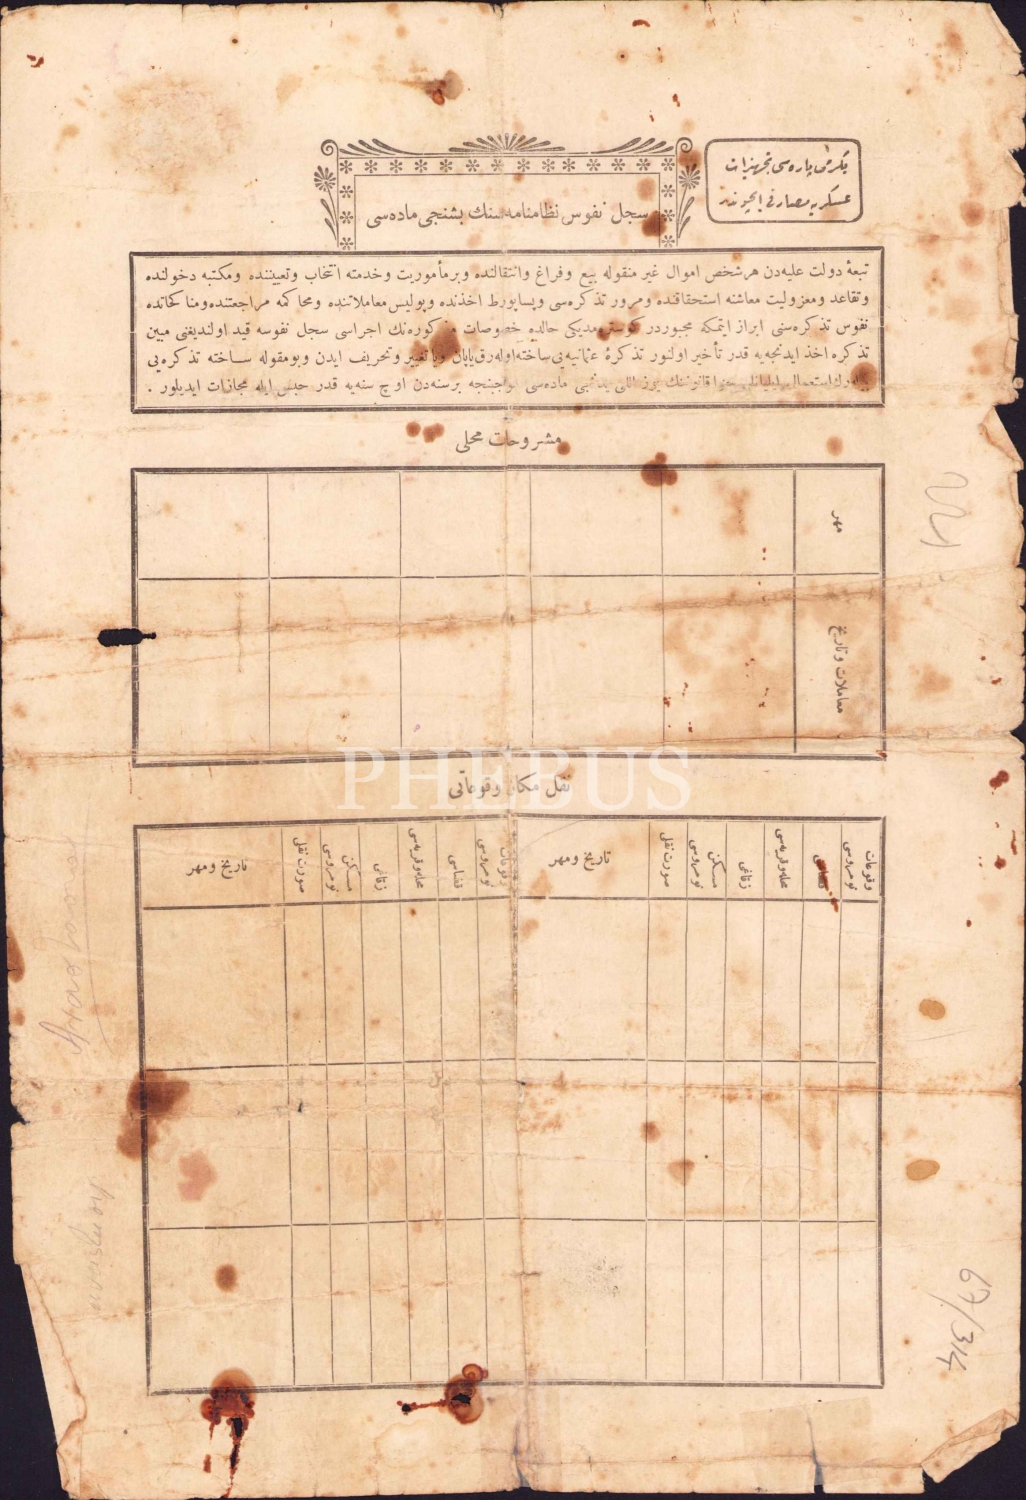 یكرمی پاره‌سی تجهیزات
عسكریه مصارفی ایچوندر
سجل نفوس نظامنامه‌سنك بشنجی ماده‌سی
تبعهٔ دولت علیه‌دن هر شخص اموال غیر منقوله بیع و فراغ و انتقالنده و بر مأموریت و خدمته انتخاب و تعییننده و مكتبه دخولنده
و تقاعد و معزولیت معاشنه استحقاقنده و مرور تذكره‌سی و پساپورط اخذنده و پولیس معاملاتنده و محاكمه مراجعتنده و مناكحاتده
نفوس تذكره‌سنی ابراز ایتمكه مجبوردر كوسترمدیكی حالده خصوصات مذكوره‌نك اجراسی سجل نفوسه قید اولندیغنی مبین
تذكره اخذ ایدنجه‌یه قدر تأخیر اولنور تذكرهٔ عثمانیه‌یی ساخته اوله‌رق یاپان ویا تغییر و تحریف ایدن و بو مقوله ساخته تذكره‌یی
بیله‌رك استعمال قانوننك یوز اللی یدنجی ماده‌سی موجبنجه بر سنه‌دن اوچ سنه‌یه قدر حبس ایله مجازات ایدیلور .
مشروحات محلی
مهر
معاملات و تاریخ
نقل مكان وقوعاتی
وقوعات نومروسی
قضاسی
محله و قریه‌سی
زقاغی
مسكن نومروسی
صورت نقلی
تاریخ و مهر
وقوعات نومروسی
قضاسی
محله و قریه‌سی
زقاغی
مسكن نومروسی
صورت نقلی
تاریخ و مهر
67/34
PHEBUS